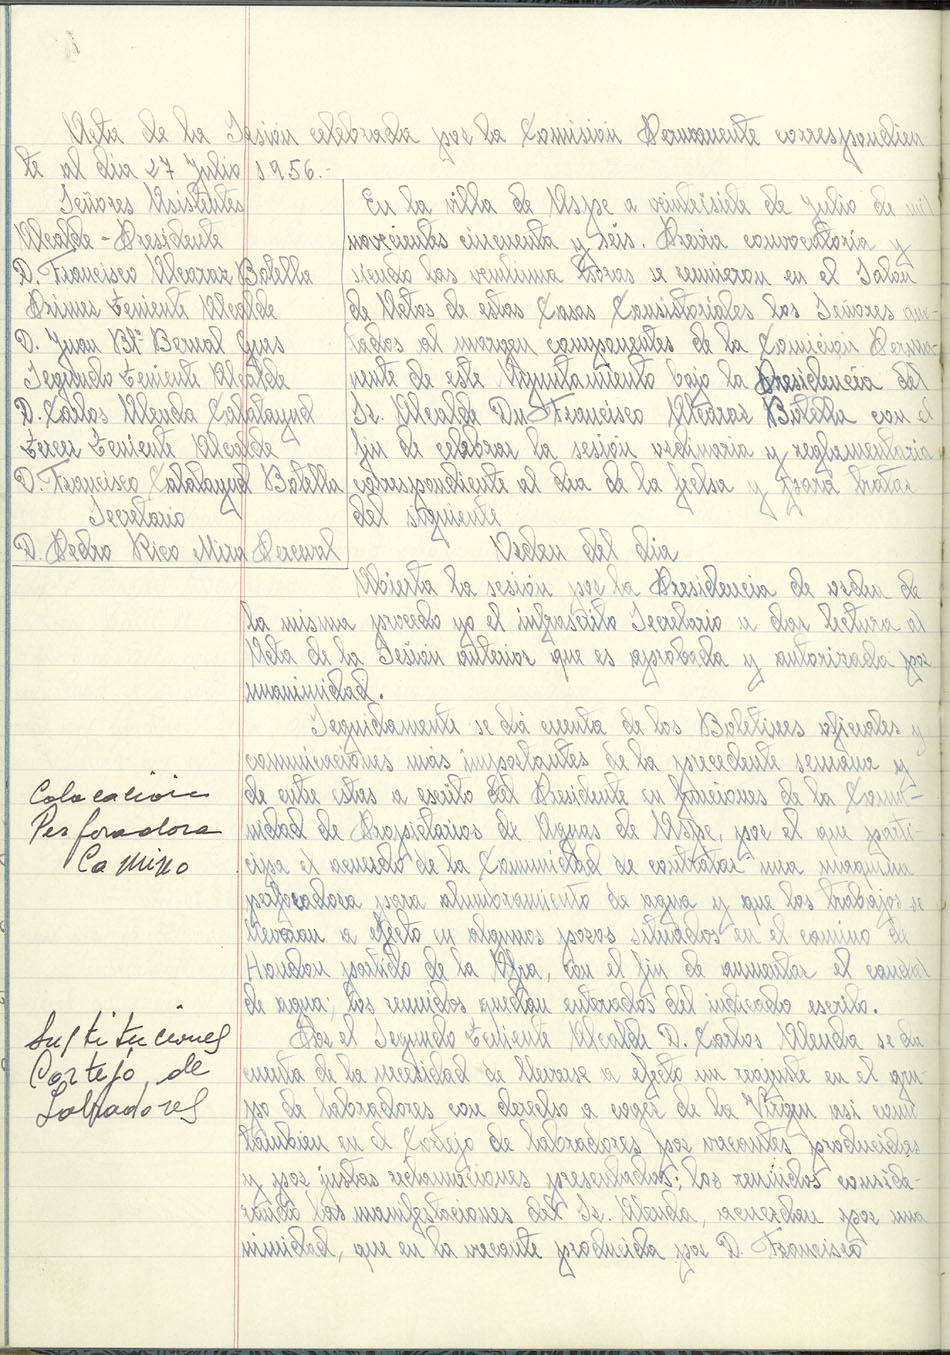 Acta de la Sesión celebrada por la Comisión Permanente correspondien
te al dia 27 Julio 1956.-
Señores Asistentes
Alcalde - Presidente
D. Francisco Alcaraz Botella
Primer Teniente Alcalde
D. Juan Btª Bernal Gras
Segundo Teniente Alcalde
D. Carlos Alenda Calatayud
Tercer Teniente Alcalde
D. Francisco Calatayud Botella
Secretario
D. Pedro Rico Mira Perceval
En la villa de Aspe a veintisiete de Julio de mil
novecientos cincuenta y seis. Previa convocatoria y
siendo las veintiuna horas se reunieron en el Salon
de Actos de estas Casas Consistoriales los Señores ano-
tados al margen componentes de la Comision Perma-
nente de este Ayuntamiento bajo la Presidencia del
Sr. Alcalde Dn Francisco Alcaraz Botella con el
fin de celebrar la sesión ordinaria y reglamentaria
correspondiente al dia de la fecha y para tratar
del siguiente
Orden del dia
Abierta la sesión por la Presidencia de orden de
la misma procedo yo el infrascrito Secretario a dar lectura al
Acta de la Sesión anterior que es aprobada y autorizada por
unanimidad.
Seguidamente se dá cuenta de los Boletines oficiales y
comunicaciones más importantes de la precedente semana y
de entre estas a escrito del Presidente en funciones de la Comu-
nidad de Propietarios de Aguas de Aspe, por el que parti-
cipa el acuerdo de la Comunidad de contratar una maquina
perforadora para alumbramiento de agua y que los trabajos se
llevaran a efecto en algunos pozos situados en el camino de
Hondon partido de la Ofra, con el fin de aumentar el caudal
de agua; los reunidos quedan enterados del indicado escrito.
Por el Segundo Teniente Alcalde D. Carlos Alenda se da
cuenta de la necesidad de llevarse a efecto un reajuste en el gru-
po de labradores con derecho a coger de la Virgen asi como
tambien en el Cortejo de labradores por vacantes producidas
y por justas reclamaciones presentadas; los reunidos conside-
rando las manifestaciones del Sr. Alenda, acuerdan por una
nimidad, que en la vacante producida por D. Francisco
Colocación
Perforadora
Camino
Sustituciones
Cortejo de
Labradores